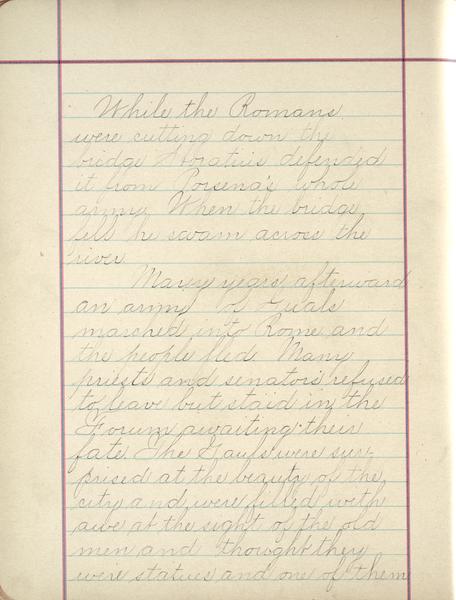 While the Romans
were cutting down the
bridge Horatius defended
it from Porsena's whole
army. When the bridge
fell he swam across the
river
Many years afterward
an army of Gauls
marched into Rome and
the people fled. Many
priests and senators refused
to leave but staid in the
Forum awaiting their
fate. The Gauls were sur-
prised at the beauty of the
city and were filled with
awe at the sight of the old
men and thought they
were statues and one of them